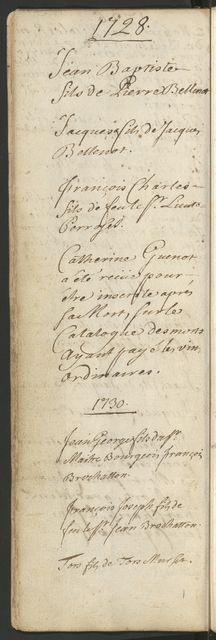 1728.
Jean Baptiste
fils de Pierre Bellenot
Jacques fils de Jacques
Bellenot.
François Charles
fils de feu le Sr. Lieut.
Perroset.
Catherine Guenot
a été reçue pour
être inscrite après
sa Mort, sur le
Catalogue des morts
Ayant payé les vin
ordinaires.
1730.
Jean George fils du Sr.
Maitre Bourgeois François
Brochatton.
François Joseph fils de
feu le Sr. Jean Brochatton.
Tors fils de Tors